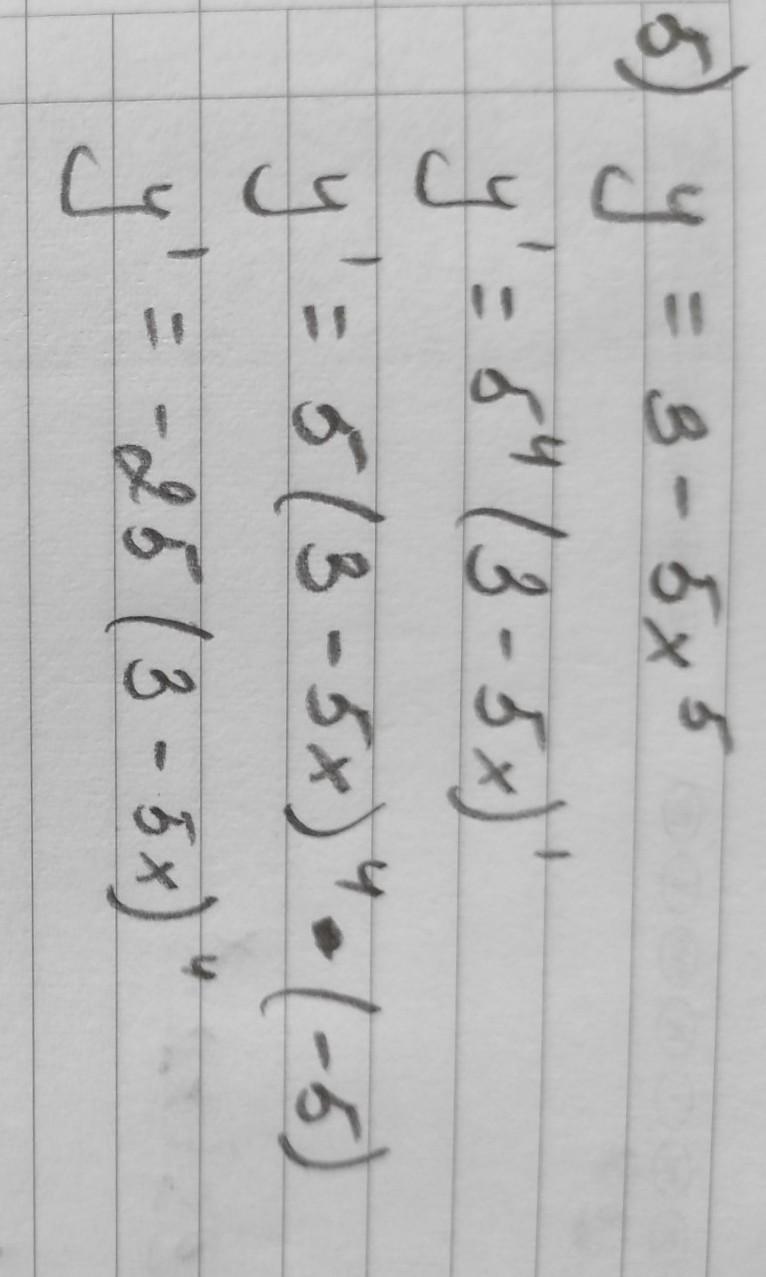 5) y = 3 - 5x⁵
y' = 5⁴ (3 - 5x)'
y' = 5(3 - 5x)⁴ • (-5)
y' = -25(3 - 5x)⁴